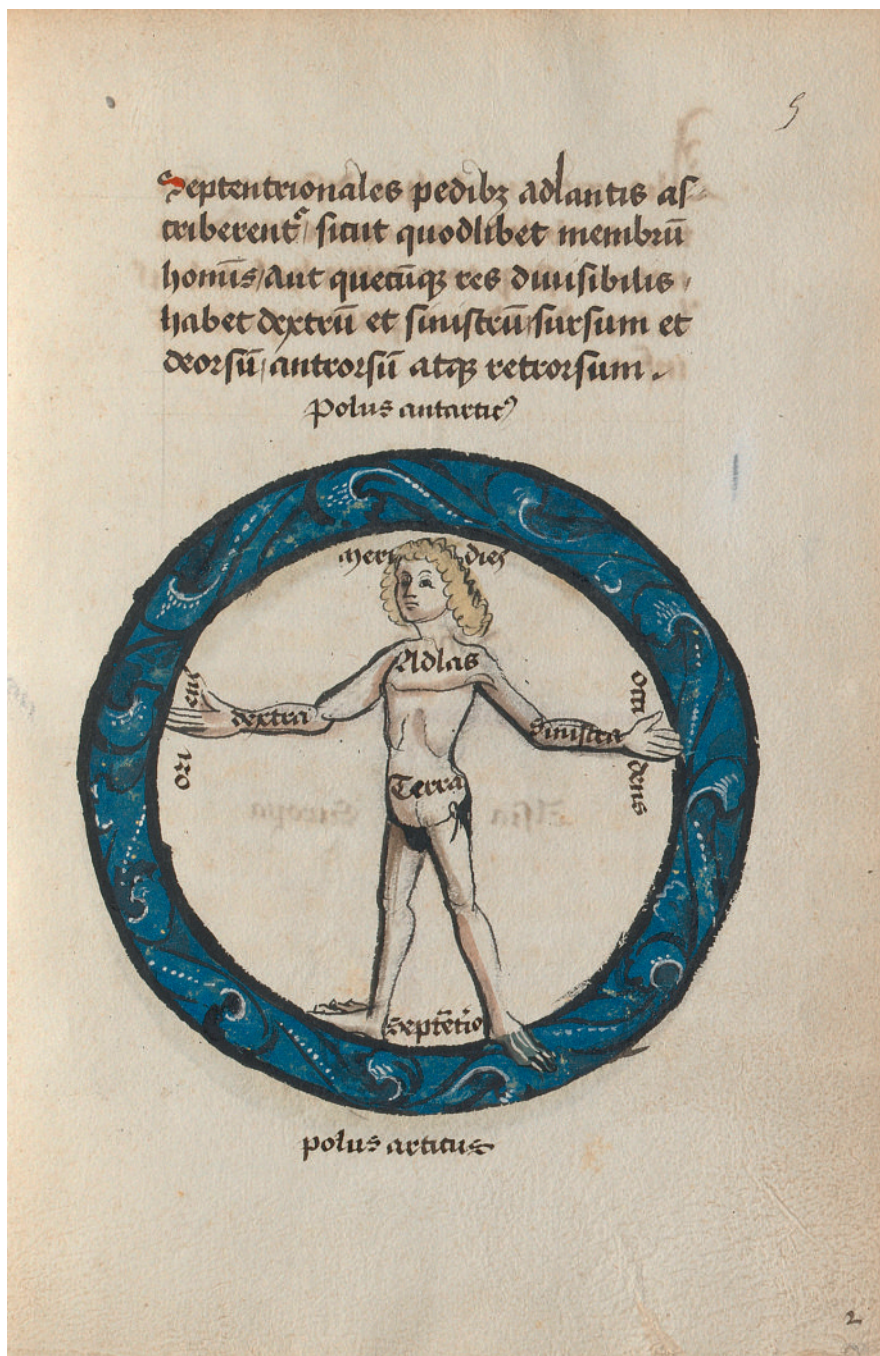 5
Septentrionales pedibꝫ adlantis as-
criberent᷑ / sicut quodlibet membrū
homīs / Aut quecūqꝫ res diuisibilis /
habet dextrū et sinistrū / sursum et
deorsū / antrorsū atqꝫ retrorsum .
Polus antarticꝰ
Meri dies
Adlas
ori ens
dextra
sinistra
occi dens
Terra
Septētrio
polus articus
2